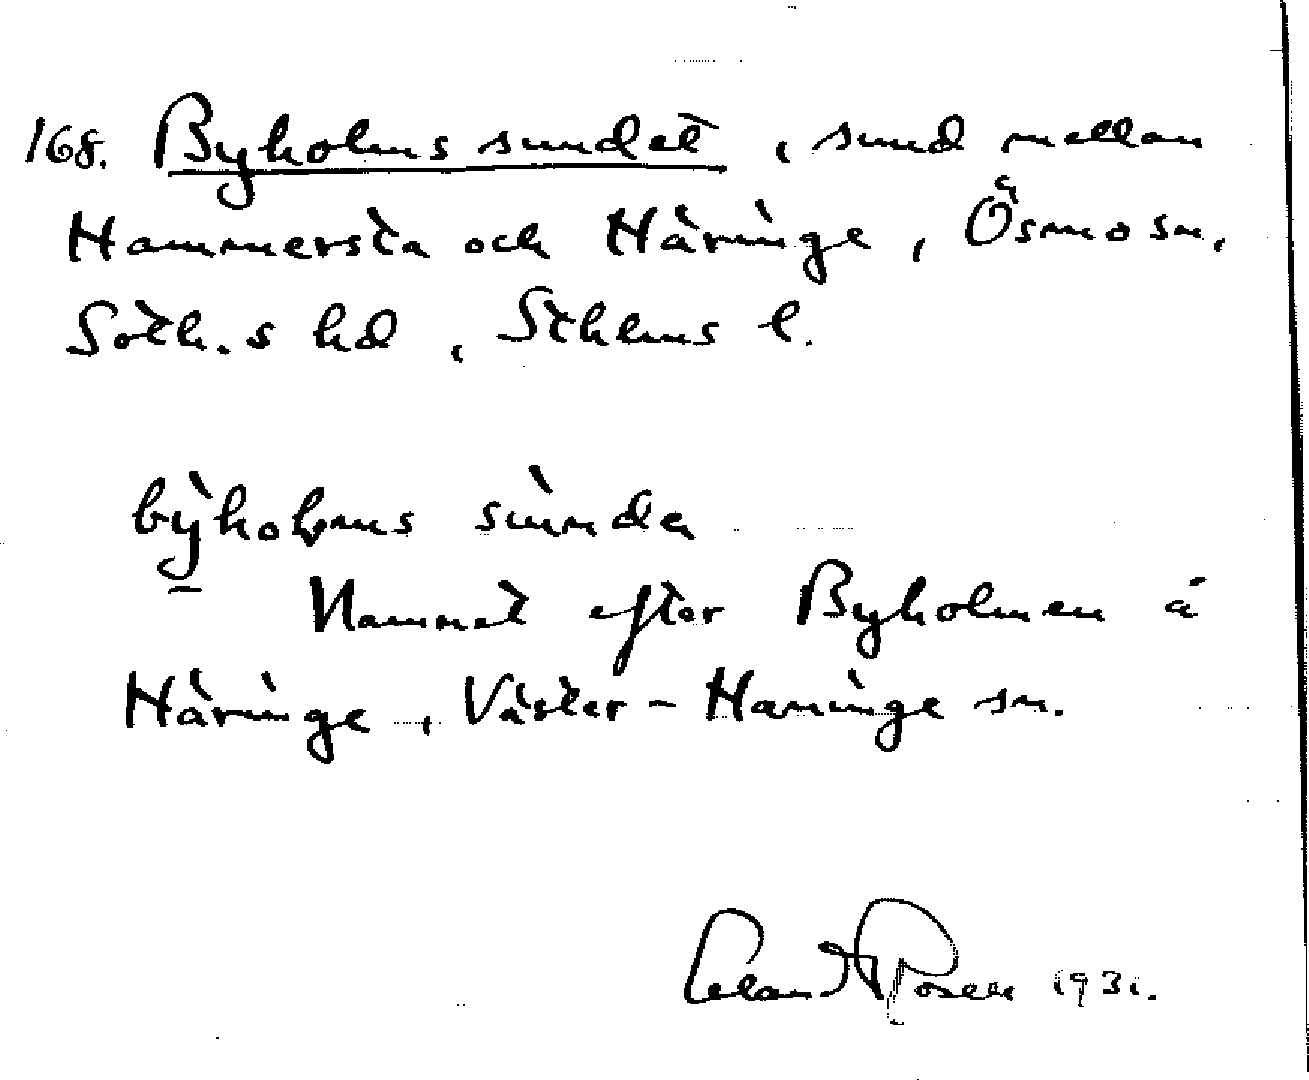 168. Byholmssundet, sund mellan
Hammersta och Häringe, Ösmo sn,
Soth.s hd, Sthlms l.
bỳholmssùnda
Namnet efter Byholmen å
Häringe, Väster-Haninge sn.
Rosén 1931.